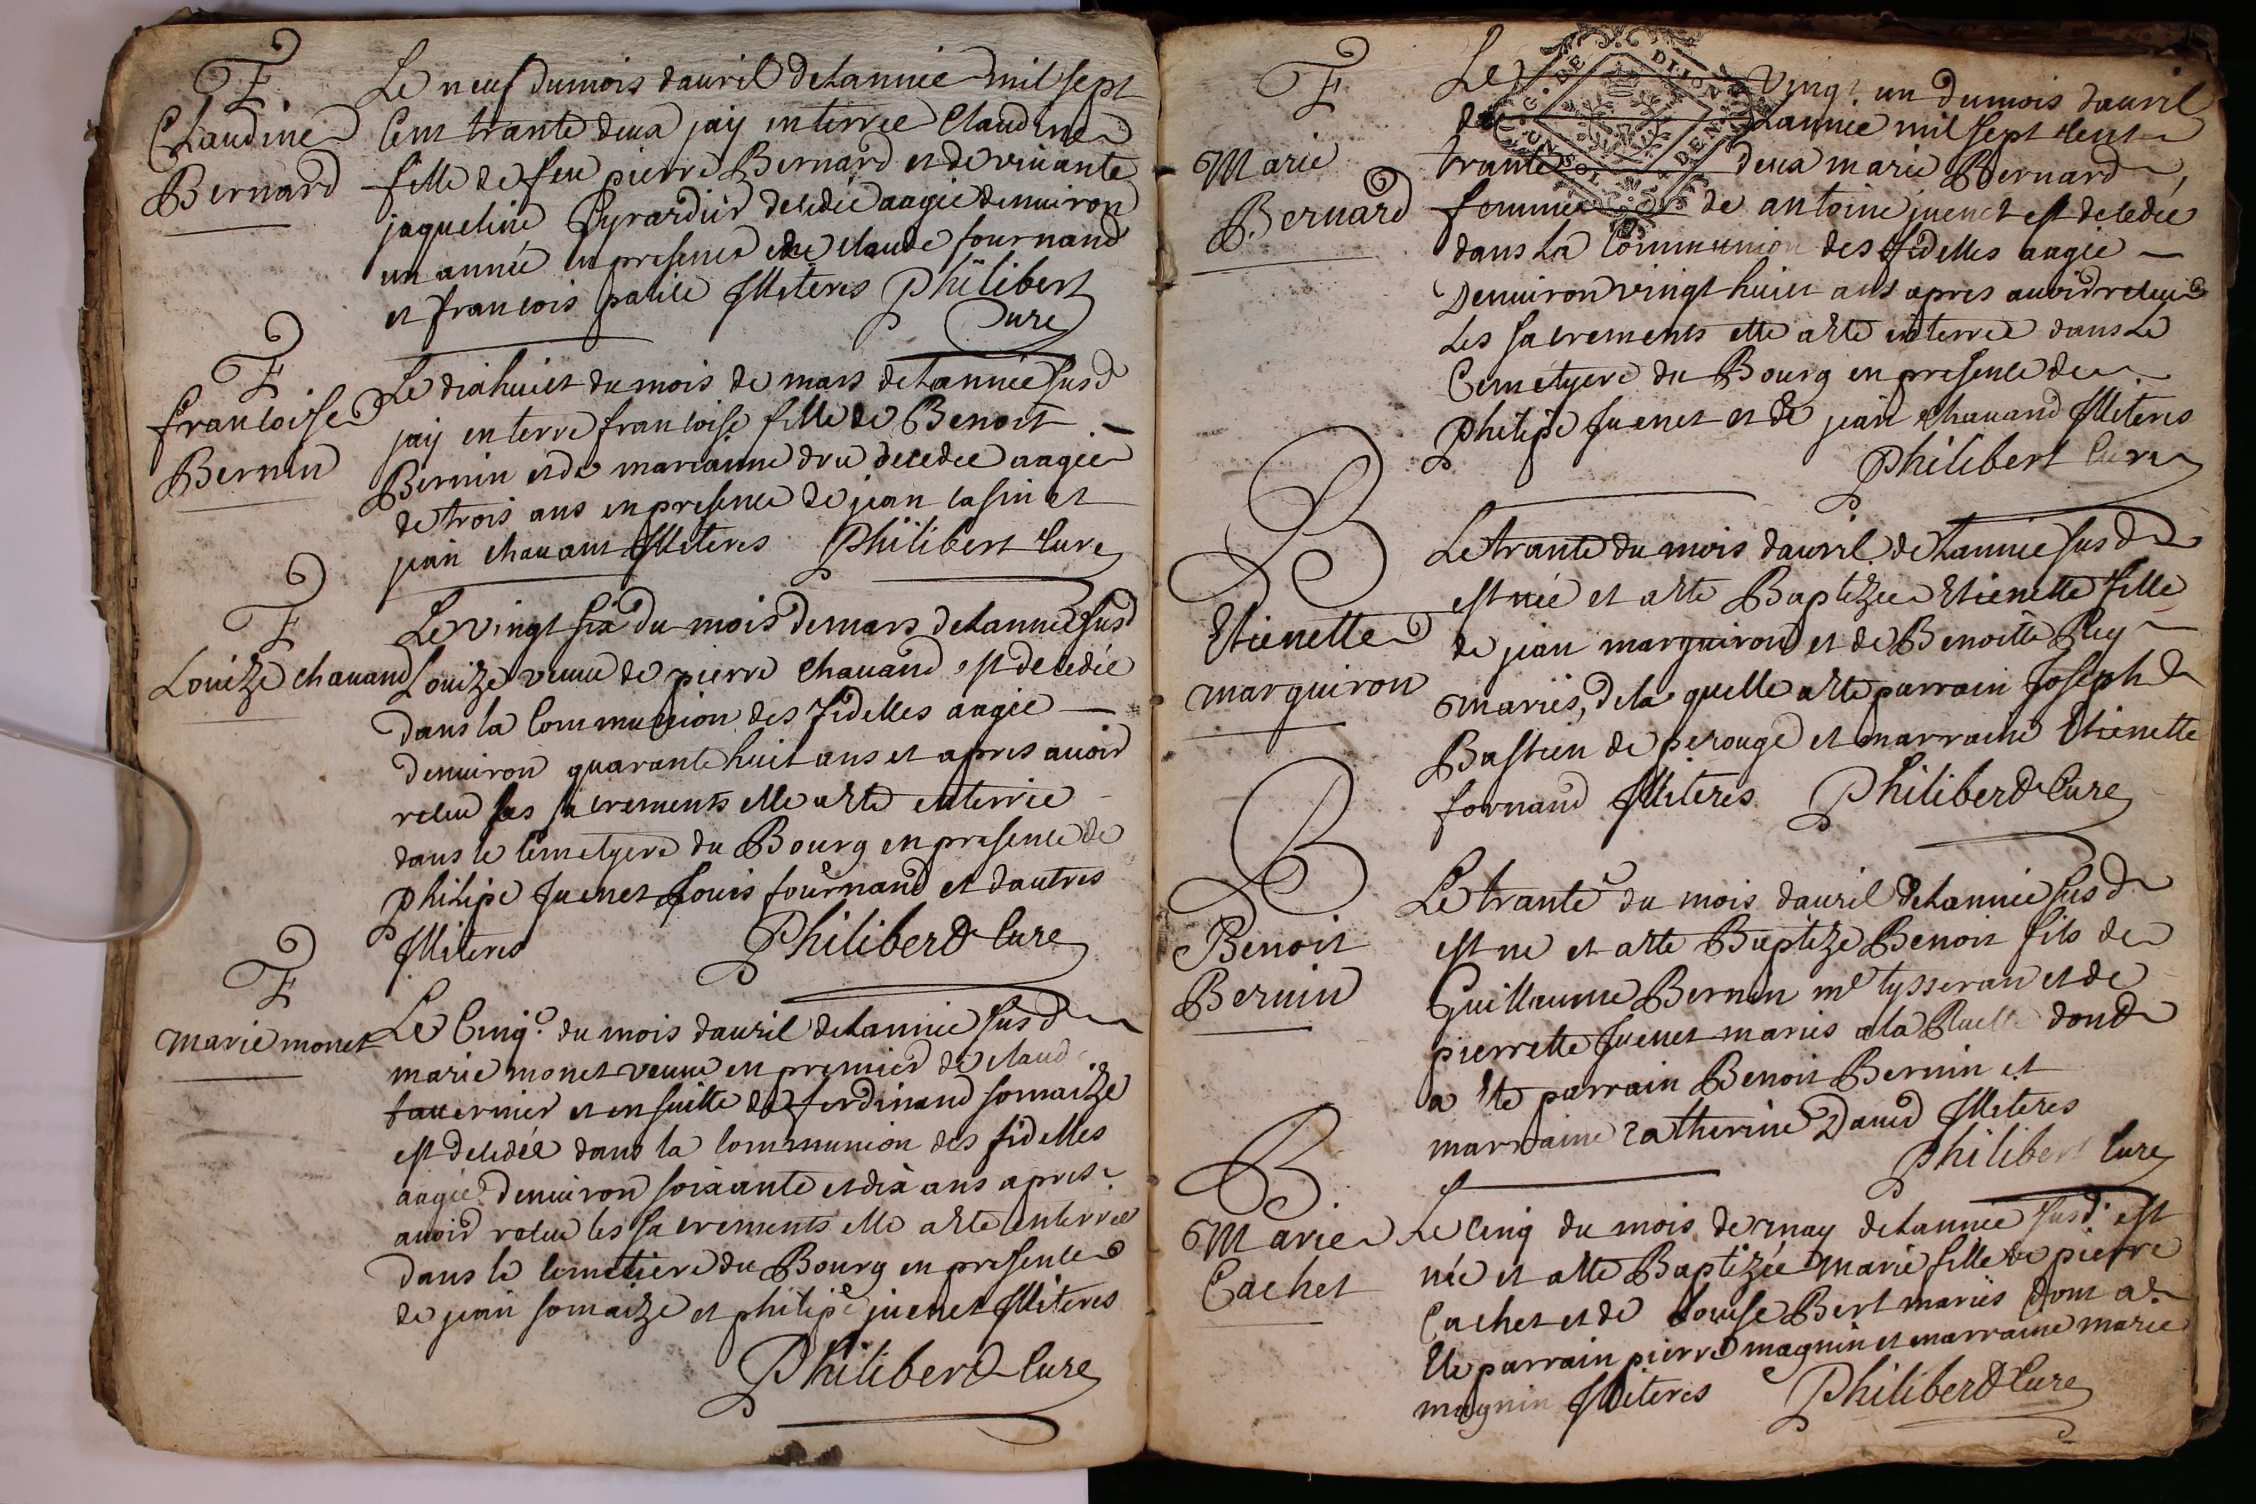 F
Claudine
Bernard
Le neuf du mois dauril de Lannée mil sept
Cent trante deux jay enterrée Claudine
fille de feu pierre Bernard et de viuante
jaqueline decedée aagée denuiron
un année en presence de claude fournand
et francois Illiteres Philibert
Curé
F
francoise
Bernin
Le dixhuict du mois de mars de Lannée susd
jay enterré francoise fille de Benoit
Bernin et de marianne dru decedée aagée
de trois ans en presence de jean et
jean chauant Illiteres Philibert Curé
F
Louize chauand
Le vingt six du mois de mars de Lannée susd
Louize veuue de pierre chauand est decedée
dans la Communion des fidelles aagée
denuiron quarante huit ans et apres auoir
receu les sacrements elle a éte enterrée
dans le cimetyere du Bourg en presence de
philipe Juenet Louis fournand et dautres
Illiteres Philiberd Curé
F
marie monet
Le Cinq.e du mois dauril de Lannée susd
marie monet veuue en premier de claud
tauernier et en suitte de ferdinand somaize
est decedée dans la communion des fidelles
aagée denuiron soixante et dix ans apres
auoir receu les sacrements elle a éte enterrée
dans le cimetiere du Bourg en presence
de jean somaize et philipe juenet Illiteres
Philiberd Curé
F
Marie
Bernard
Le vingt un du mois dauril
de Lannée mil sept cent
trante deux marie Bernard
femme de antoine juenet est decedée
dans La Communion des fidelles aagée
Denuiron vingt huict ans apres auoir receu
Les sacrements elle a éte enterrée dans Le
Cemetyere du Bourg en presence de
Philipe Juenet et de jean chauand Illiteres
Philibert Curé
GE DE DIJON
B
Etienette
marguiron
Le trante du mois dauril de Lannée susd
est née et a éte Baptizée Etienette fille
de jean marguiron et de Benoitte Rey
mariés, de la quelle a éte parrain Joseph
Bastien de perouge et marraine Etienette
fornand Illiteres Philiberd Curé
B
Benoit
Bernin
Le trante du mois dauril de Lannée susd
est né et a éte Baptizé Benoit fils de
Guillaume Bernin m.e tysseran et de
pierrette Juenet mariés a la Ruelle dond
a éte parrain Benoit Bernin et
marraine Catherine Dauid Illiteres
Philibert Curé
B
Marie
Cachet
Le cinq du mois de may de Lannée susd est
née et a éte Baptizée Marie fille de pierre
Cachet et de Louise Bert mariés dont a
éte parrain pierre magnin et marraine marie
magnin Illiteres Philiberd Curé